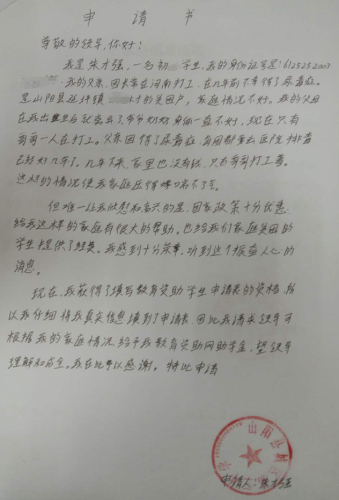 申请书
尊敬的领导,你好!
我是朱才强,一名初 学生,我的身份证号是:612525200
我的父亲,因长年在河南打工,在几年前不幸得了尿毒症。
是山阳县延坪镇 村的贫困户,家庭情况不好。我的父母
在我出 身体一直不好,现在只有
哥哥一人在打工。父亲因得了尿毒症,每周都要去医院
已经好几年了。几年下来,家里也没有钱,只力哥哥打工着。
这样的情况使我家庭
但唯一让我欣慰和高兴的是,国家政策十分优惠
给我这样的家庭有很大的帮助。也给我们家庭贫困的
学生提供了 。我感到十分荣幸,听到这个振奋人心的
消息。
现在,我获得了填写教育资助学生申请表的资格,所
以我仔细将我真实信息填到了申请表,因此我请求领导可
根据我的家庭情况,给予我教育资助网助学金,望领导
理解和成全。我在此予以感谢。特此申请
山阳县
申请人:朱才强